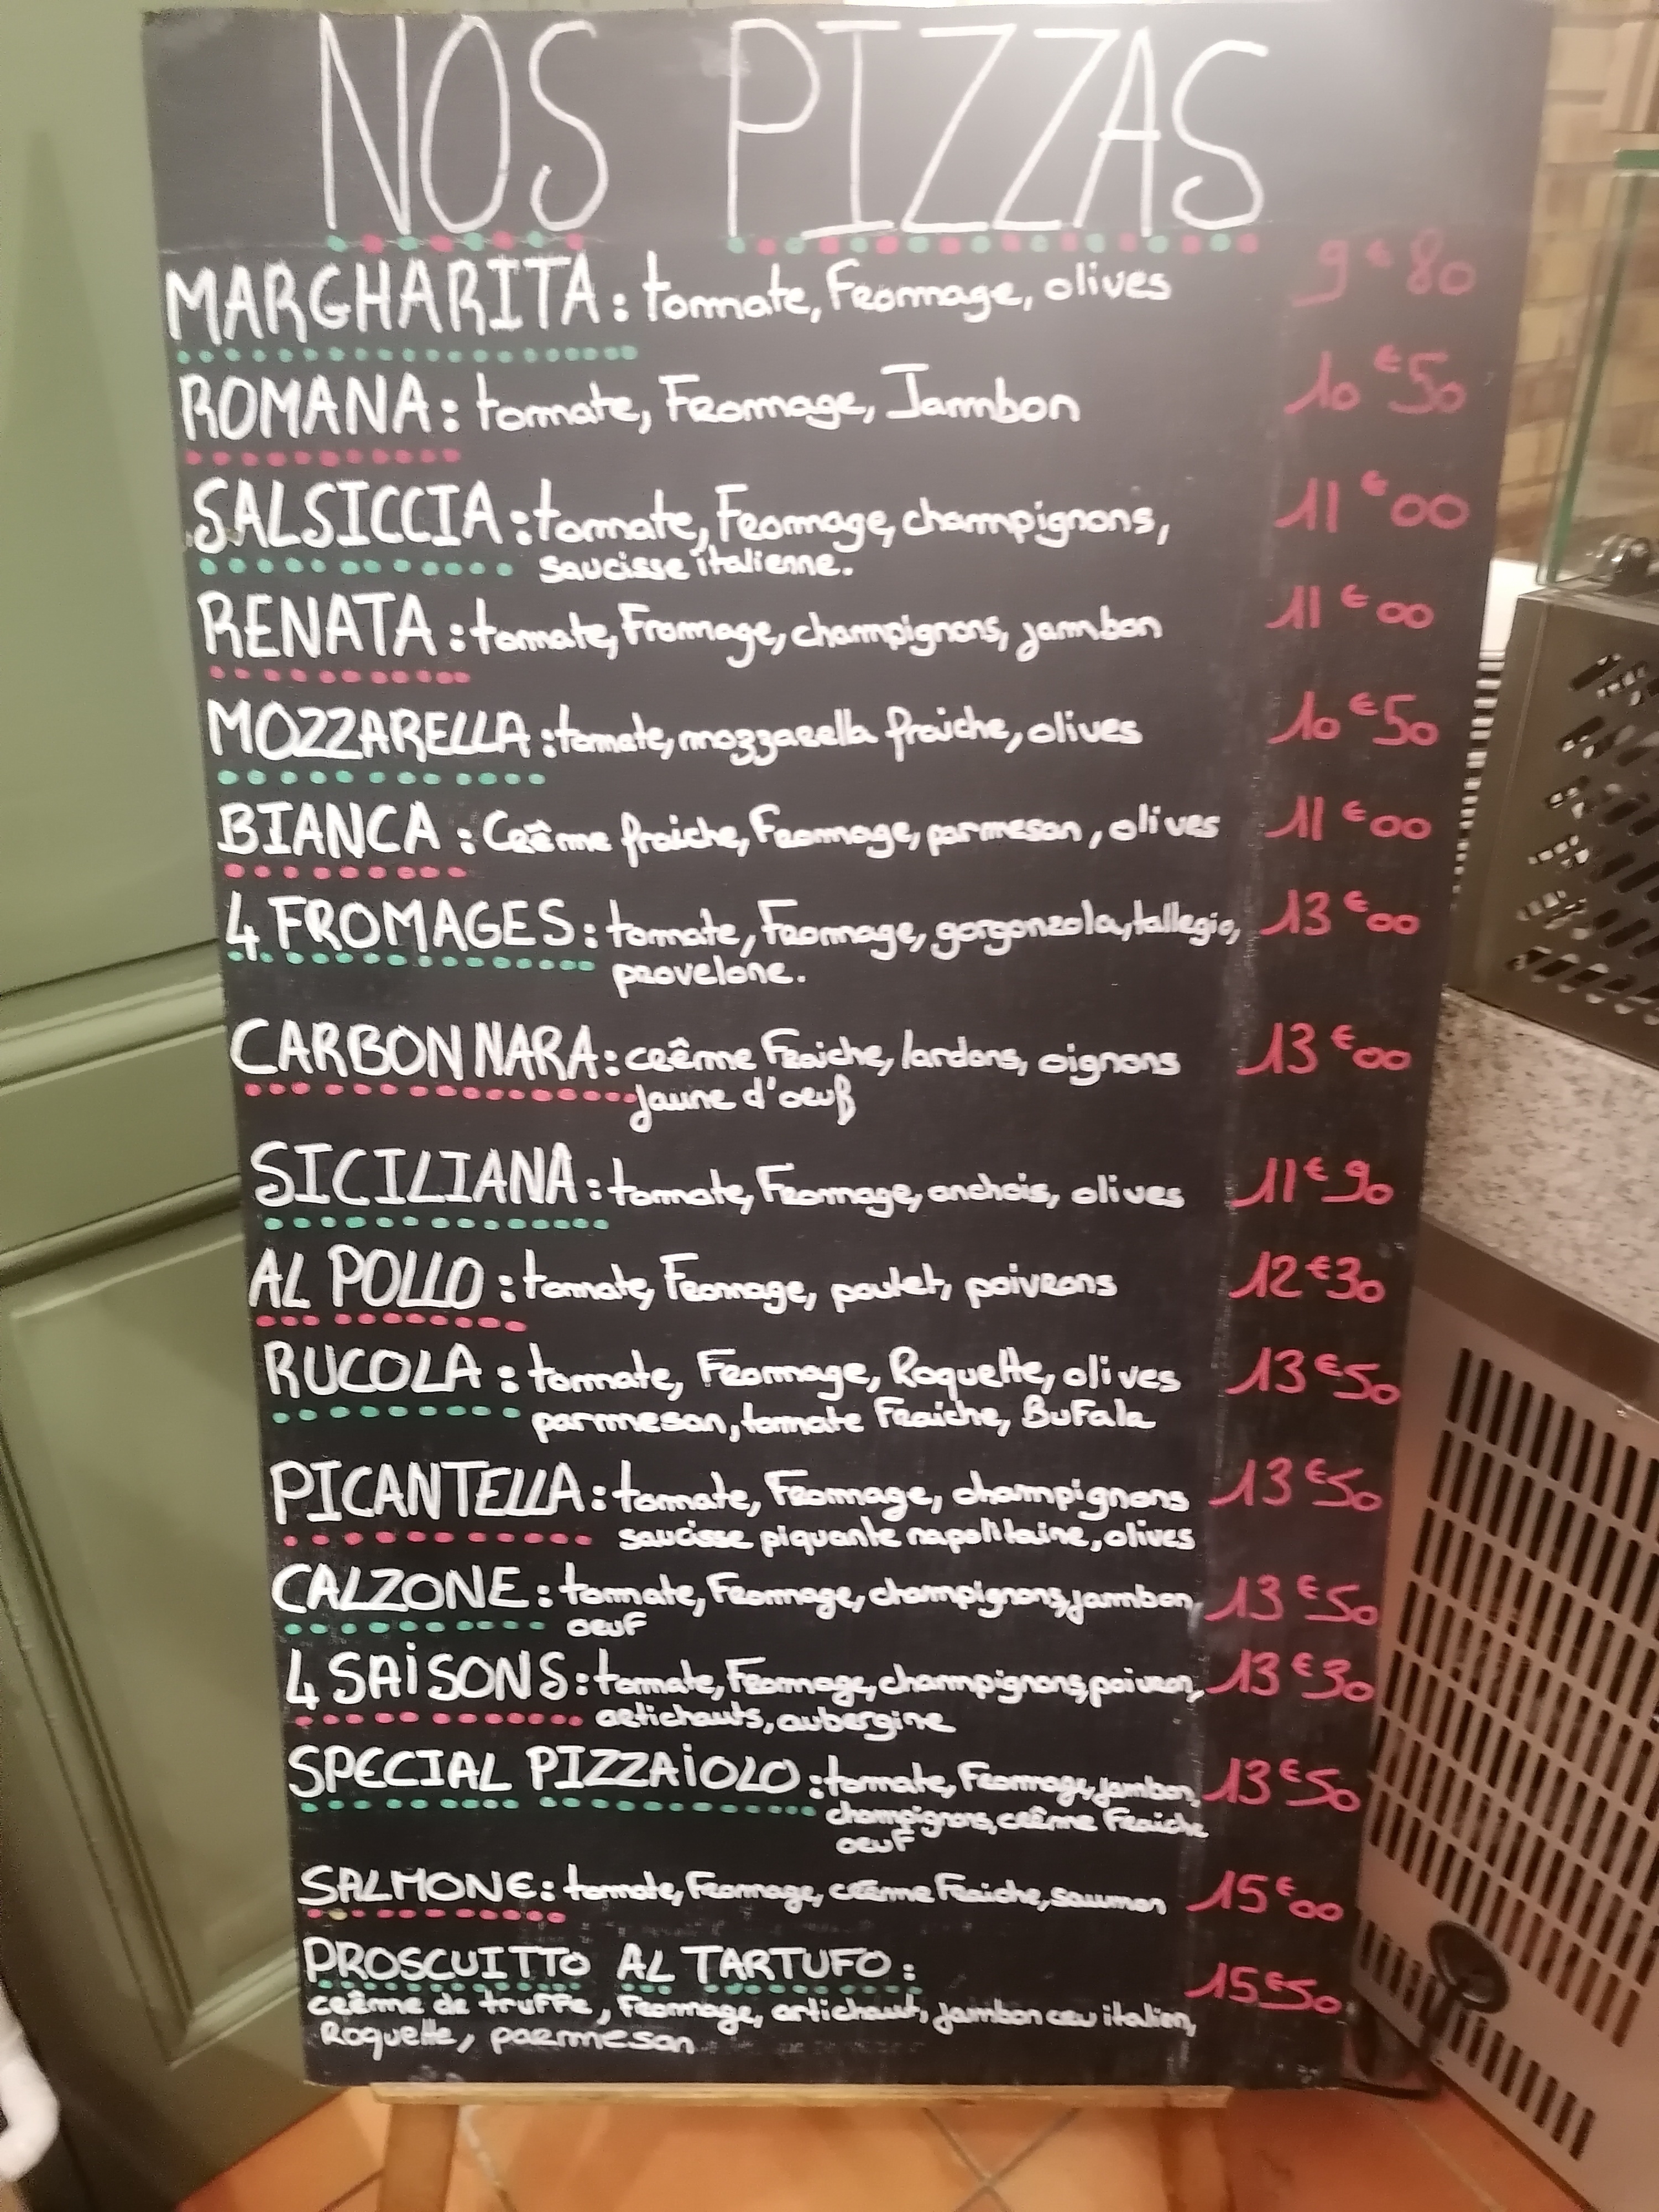 NOS PIZZAS
MARGHARITA : tomate, Fromage, olives 9€80
ROMANA : tomate, Fromage, Jambon 10€50
SALSICCIA : tomate, Fromage, champignons, 11€00
saucisse italienne.
RENATA : tomate, Fromage, champignons, jambon 11€00
MOZZARELLA : tomate, mozzarella fraiche, olives 10€50
BIANCA : Crême fraiche, Fromage, parmesan, olives 11€00
4 FROMAGES : tomate, Fromage, gorgonzola, tallegio, 13€00
provelone.
CARBONNARA : crême Fraiche, lardons, oignons 13€00
jaune d'oeuf
SICILIANA : tomate, Fromage, anchois, olives 11€90
AL POLLO : tomate, Fromage, poulet, poivrons 12€30
RUCOLA : tomate, Fromage, Roquette, olives 13€50
parmesan, tomate Fraiche, BuFala
PICANTELLA : tomate, Fromage, champignons 13€50
saucisse piquante napolitaine, olives
CALZONE : tomate, Fromage, champignons, jambon, 13€50
oeuF
4 SAiSONS : tomate, Fromage, champignons, poivron, 13€30
artichauts, aubergine
SPECIAL PIZZAiOLO : tomate, Fromage, jambon, 13€50
champignons, crême Fraiche
oeuF
SALMONE : tomate, Fromage, crême Fraiche, saumon 15€00
PROSCUITTO AL TARTUFO : 15€50
crême de truFFe, Fromage, artichaut, jambon cru italien,
Roquette, parmesan